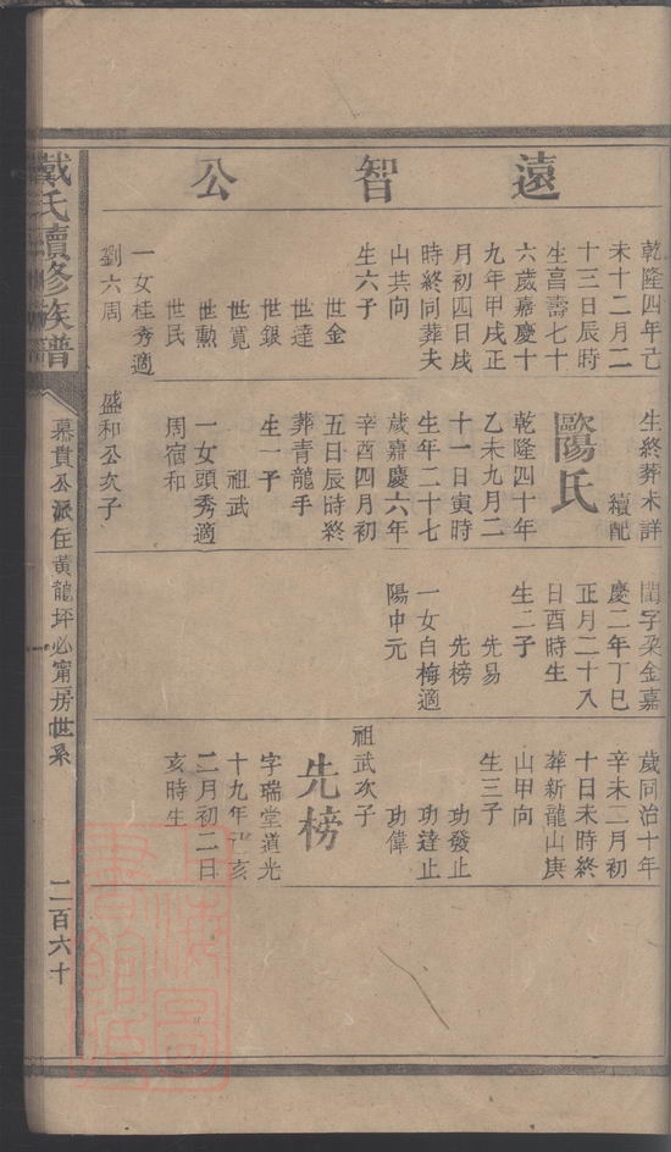 遠智公
乾隆四年己
未十二月二
十三日辰時
生㫖壽七十
六歲嘉慶十
九年甲戌正
月初四日戌
時終同葬夫
山共向
生六子
世金
世達
世銀
世寬
世勳
世民
一女桂秀適
劉六周
生終葬未詳
續配
歐陽氏
乾隆四十年
乙未九月二
十一日寅時
生年二十七
歲嘉慶六年
辛酉四月初
五日辰時終
葬青龍手
生一子
祖武
一女頭秀適
周宿和
盛和公次子
閏字朶金嘉
慶二年丁巳
正月二十八
日酉時生
生二子
先易
先榜
一女白梅適
陽中元
歲同治十年
辛未二月初
十日未時終
葬新龍山庚
山甲向
生三子
功發止
功達止
功偉
祖武次子
先榜
字瑞堂道光
十九年亥
二月初二日
亥時生
戴氏續修族譜
慕貴公派住黃龍坪必甯房世系
二百六十
上海圖書館藏